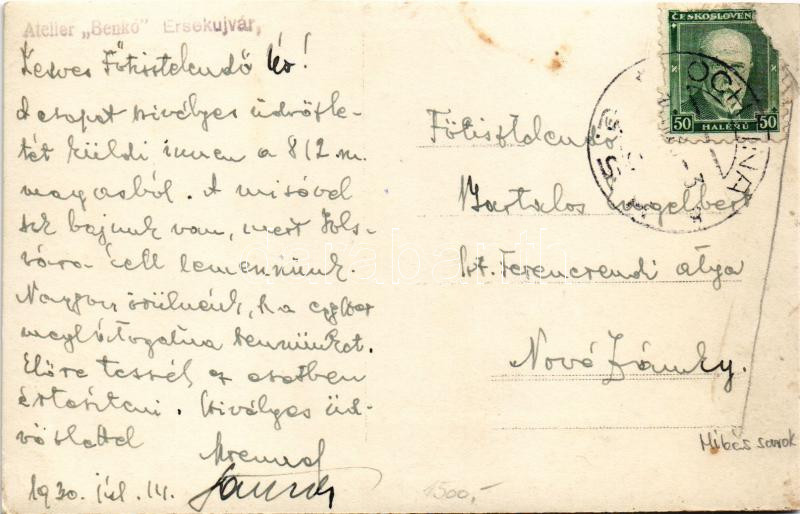 Atelier „Benkó” Ersekujvár,
Kedves Főtisztelendő Úr!
A csapat szivélyes üdvözle-
tét küldi innen a 812 m.
magasból. A misével
sok bajunk van, mert Jols-
vára kell lemennünk.
Nagyon örülnénk, ha egyszer
meglátogatna bennünket.
Előre tessék az esetben
értesíteni. Szivélyes üd-
vözlettel
1930. júl. 14.
ČESKOSLOVEN
50 HALÉŘŮ 50
OCHTINÁ
Főtisztelendő
Bartalos Engelbert
Szt. Ferencrendi atya
Nové Zámky.
Hibás sarok
1500,-